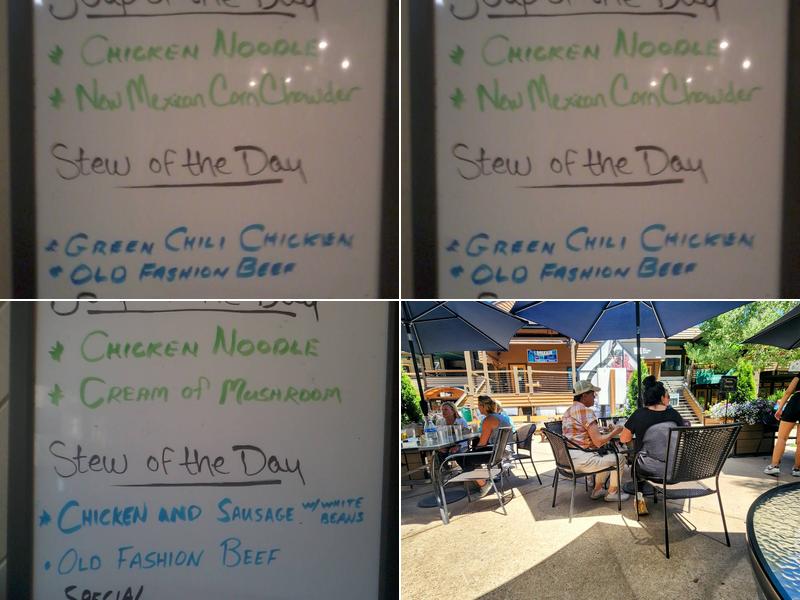 Soup of the Day
* CHICKEN NOODLE
* New Mexican Corn Chowder
Stew of the Day
* GREEN CHILI CHICKEN
• OLD FASHION BEEF
Soup of the Day
* CHICKEN NOODLE
* New Mexican Corn Chowder
Stew of the Day
* GREEN CHILI CHICKEN
• OLD FASHION BEEF
Soup of the Day
* CHICKEN NOODLE
* CREAM of MUSHROOM
Stew of the Day
* CHICKEN AND SAUSAGE w/WHITE BEANS
• OLD FASHION BEEF
SPECIAL